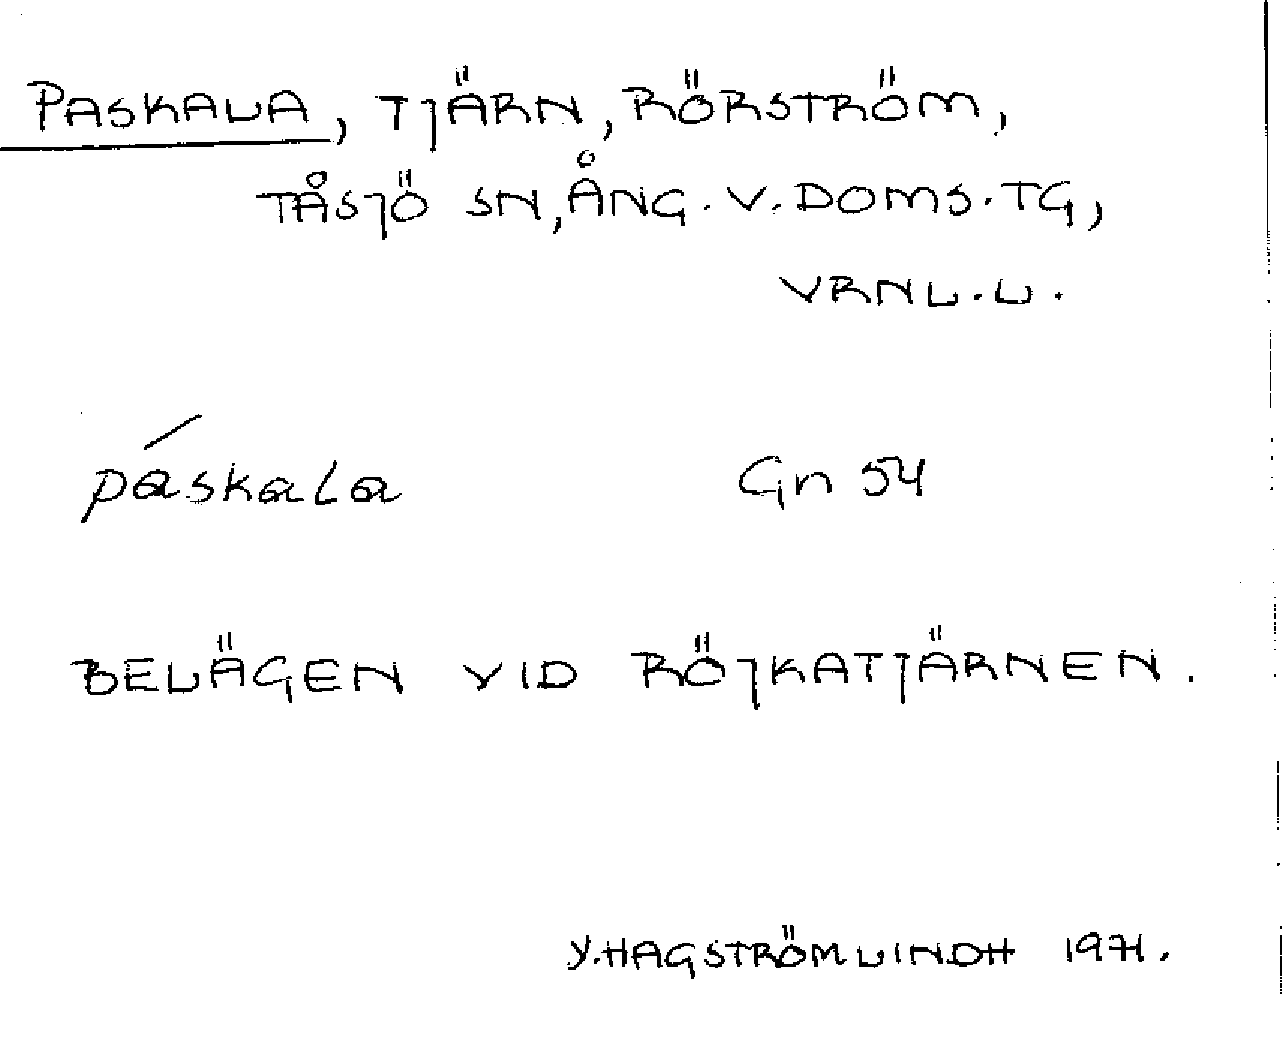 PASKALA, TJÄRN, RÖRSTRÖM,
TÅSJÖ SN, ÅNG. V. DOMS. TG,
VRNL. L.
páskala Gn 54
BELÄGEN VID RÖJKATJÄRNEN.
Y. HAGSTRÖM LINDH 1971.